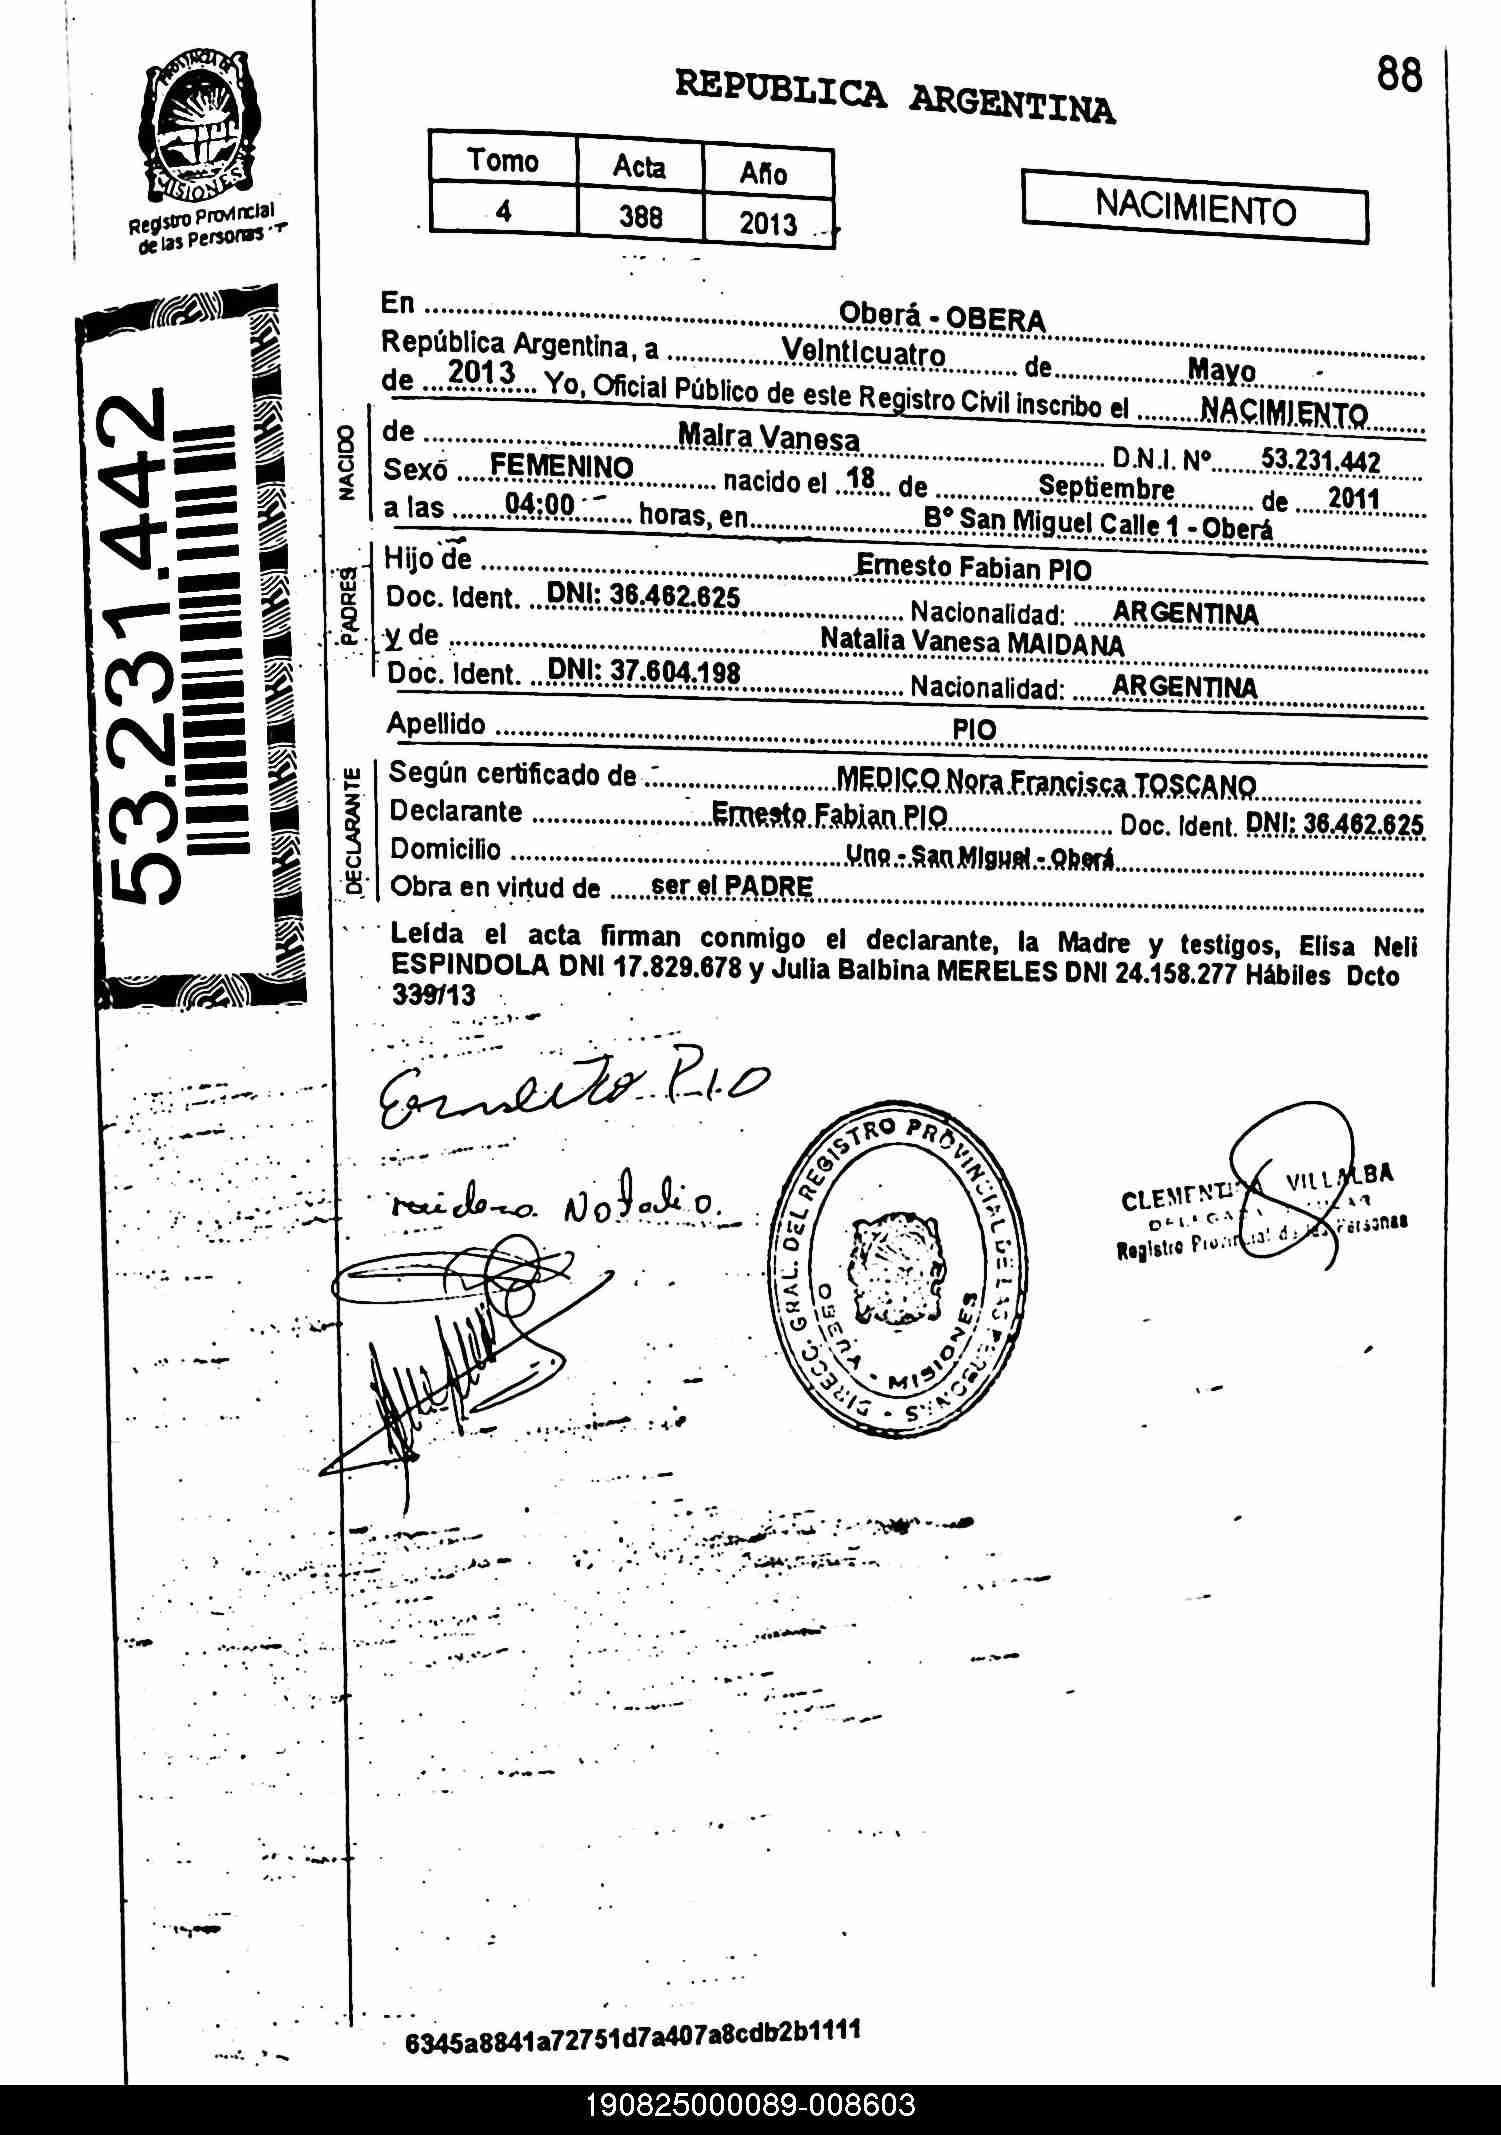 88
PROVINCIA DE
MISIONES
Registro Provincial
de las Personas
REPUBLICA ARGENTINA
Tomo Acta Año
4 388 2013
NACIMIENTO
53.231.442
En Oberá - OBERA
República Argentina, a Veinticuatro de Mayo
de 2013 Yo, Oficial Público de este Registro Civil inscribo el NACIMIENTO
NACIDO
de Maira Vanesa D.N.I. Nº 53.231.442
Sexo FEMENINO nacido el 18 de Septiembre de 2011
a las 04:00 horas, en Bº San Miguel Calle 1 - Oberá
PADRES
Hijo de Ernesto Fabian PIO
Doc. Ident. DNI: 36.462.625 Nacionalidad: ARGENTINA
y de Natalia Vanesa MAIDANA
Doc. Ident. DNI: 37.604.198 Nacionalidad: ARGENTINA
Apellido PIO
DECLARANTE
Según certificado de MEDICO Nora Francisca TOSCANO
Declarante Ernesto Fabian PIO Doc. Ident. DNI: 36.462.625
Domicilio Uno - San Miguel - Oberá
Obra en virtud de ser el PADRE
Leída el acta firman conmigo el declarante, la Madre y testigos, Elisa Neli
ESPINDOLA DNI 17.829.678 y Julia Balbina MERELES DNI 24.158.277 Hábiles Dcto
339/13
Ernesto PIO
Natalia
DIRECC. GRAL. DEL REGISTRO PROVINCIAL DE LAS PERSONAS
MISIONES
CLEMENTINA VILLALBA
Registro Provincial de las Personas
6345a8841a72751d7a407a8cdb2b1111
190825000089-008603